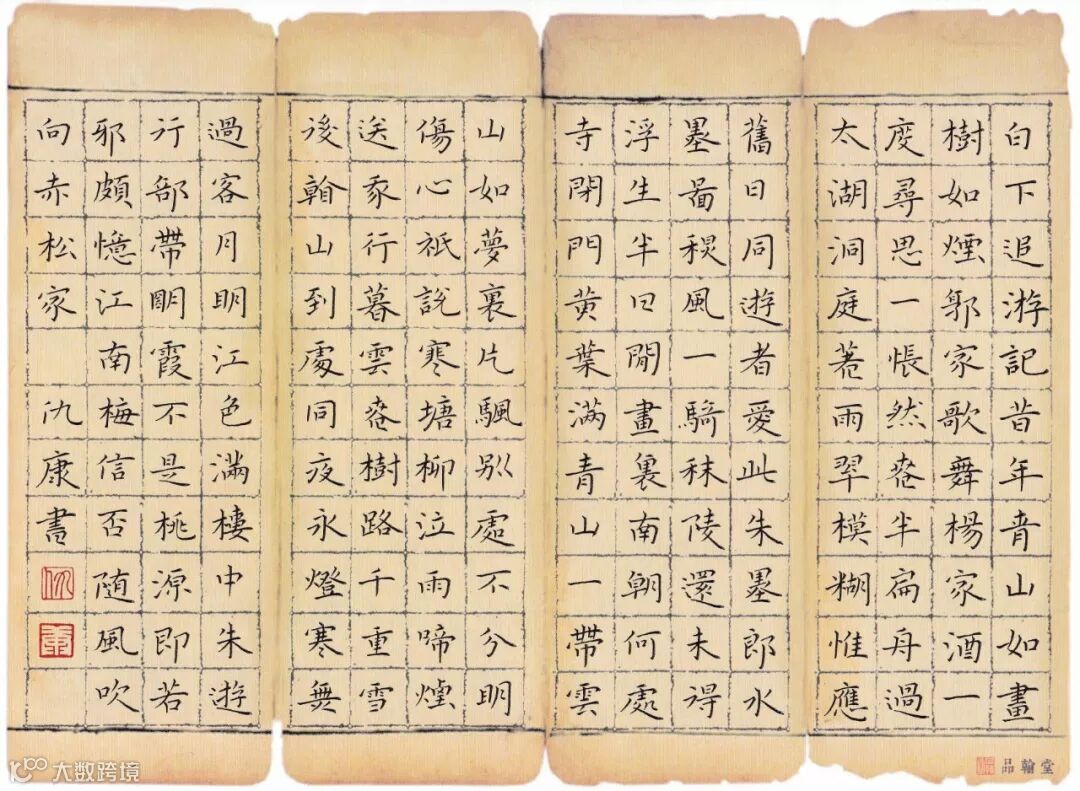 白下追游記昔年青山如畫
樹如煙郭家歌舞楊家酒一
度尋思一悵然春半扁舟過
太湖洞庭著雨翠模糊惟應
舊日同遊者愛此朱墨郎水
墨啚穐風一騎秣陵還未得
浮生半日閒畫裏南朝何處
寺閉門黃葉滿青山一帶雲
山如夢裏片颿別處不分明
傷心祇說寒塘柳泣雨啼煙
送行暮雲春樹路千重雪
後翰山到處同夜永燈寒無
過客月明江色滿樓中朱遊
行部帶朝霞不是桃源即若
邪頗憶江南梅信否随風吹
向赤松家 仇康書
仇
康
品翰堂
大数跨境